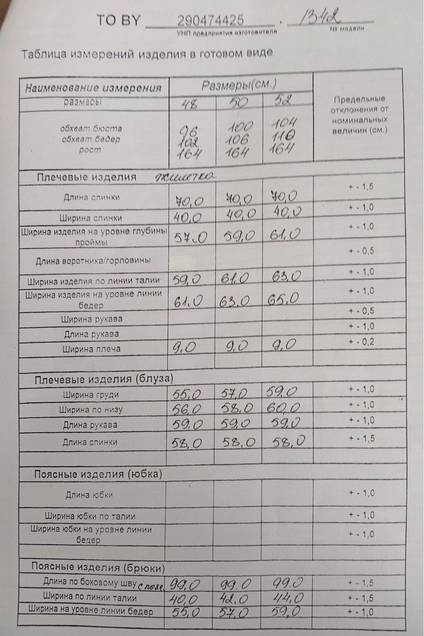 ТО BY 290474425 . 1342
УНП предприятия изготовителя № модели
Таблица измерений изделия в готовом виде
Наименование измерения Размеры(см.) Предельные отклонения от номинальных величин (см.)
размеры 48 50 52
обхват бюста 96 100 104
обхват бедер 102 106 110
рост 164 164 164
Плечевые изделия жилетка
Длина спинки 70,0 70,0 70,0 + - 1,5
Ширина спинки 40,0 40,0 40,0 + - 1,0
Ширина изделия на уровне глубины проймы 57,0 59,0 61,0 + - 1,0
Длина воротника/горловины + - 0,5
Ширина изделия по линии талии 59,0 61,0 63,0 + - 1,0
Ширина изделия на уровне линии бедер 61,0 63,0 65,0 + - 1,0
Ширина рукава + - 0,5
Длина рукава + - 1,0
Ширина плеча 9,0 9,0 9,0 + - 0,2
Плечевые изделия (блуза)
Ширина груди 55,0 57,0 59,0 + - 1,0
Ширина по низу 56,0 58,0 60,0 + - 1,0
Длина рукава 59,0 59,0 59,0 + - 1,0
Длина спинки 58,0 58,0 58,0 + - 1,5
Поясные изделия (юбка)
Длина юбки + - 1,0
Ширина юбки по талии + - 1,0
Ширина юбки на уровне линии бедер + - 1,0
Поясные изделия (брюки)
Длина по боковому шву с пояс. 99,0 99,0 99,0 + - 1,5
Ширина по линии талии 40,0 42,0 44,0 + - 1,5
Ширина на уровне линии бедер 55,0 57,0 59,0 + - 1,0